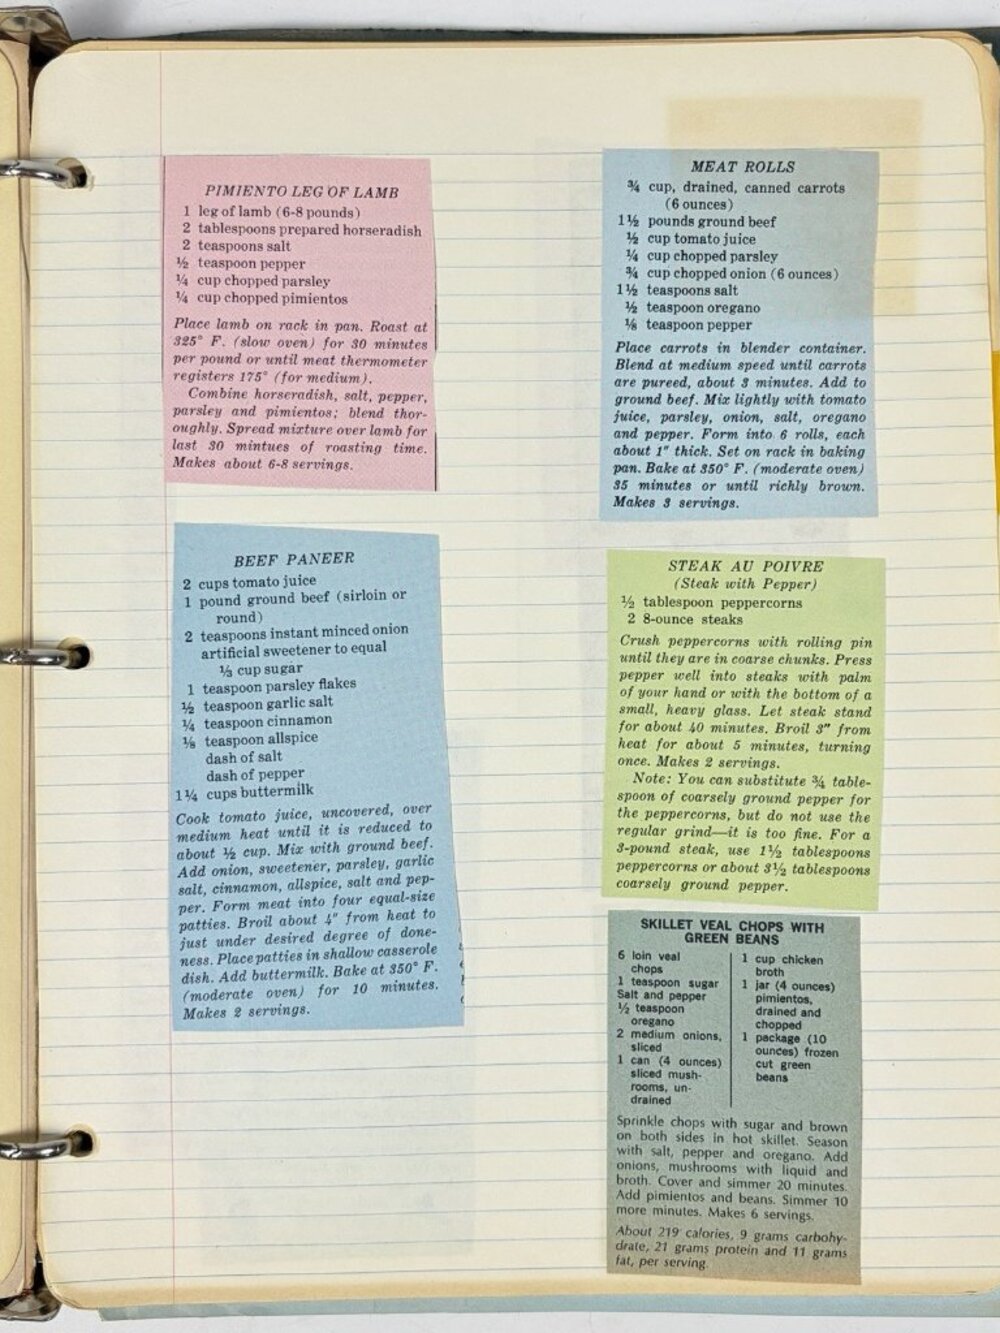 PIMIENTO LEG OF LAMB
1 leg of lamb (6-8 pounds)
2 tablespoons prepared horseradish
2 teaspoons salt
½ teaspoon pepper
¼ cup chopped parsley
¼ cup chopped pimientos
Place lamb on rack in pan. Roast at
325° F. (slow oven) for 30 minutes
per pound or until meat thermometer
registers 175° (for medium).
Combine horseradish, salt, pepper,
parsley and pimientos; blend thor-
oughly. Spread mixture over lamb for
last 30 mintues of roasting time.
Makes about 6-8 servings.
BEEF PANEER
2 cups tomato juice
1 pound ground beef (sirloin or
round)
2 teaspoons instant minced onion
artificial sweetener to equal
⅓ cup sugar
1 teaspoon parsley flakes
½ teaspoon garlic salt
¼ teaspoon cinnamon
⅛ teaspoon allspice
dash of salt
dash of pepper
1¼ cups buttermilk
Cook tomato juice, uncovered, over
medium heat until it is reduced to
about ½ cup. Mix with ground beef.
Add onion, sweetener, parsley, garlic
salt, cinnamon, allspice, salt and pep-
per. Form meat into four equal-size
patties. Broil about 4" from heat to
just under desired degree of done-
ness. Place patties in shallow casserole
dish. Add buttermilk. Bake at 350° F.
(moderate oven) for 10 minutes.
Makes 2 servings.
MEAT ROLLS
¾ cup, drained, canned carrots
(6 ounces)
1½ pounds ground beef
½ cup tomato juice
¼ cup chopped parsley
¾ cup chopped onion (6 ounces)
1½ teaspoons salt
½ teaspoon oregano
⅛ teaspoon pepper
Place carrots in blender container.
Blend at medium speed until carrots
are pureed, about 3 minutes. Add to
ground beef. Mix lightly with tomato
juice, parsley, onion, salt, oregano
and pepper. Form into 6 rolls, each
about 1" thick. Set on rack in baking
pan. Bake at 350° F. (moderate oven)
35 minutes or until richly brown.
Makes 3 servings.
STEAK AU POIVRE
(Steak with Pepper)
½ tablespoon peppercorns
2 8-ounce steaks
Crush peppercorns with rolling pin
until they are in coarse chunks. Press
pepper well into steaks with palm
of your hand or with the bottom of a
small, heavy glass. Let steak stand
for about 40 minutes. Broil 3" from
heat for about 5 minutes, turning
once. Makes 2 servings.
Note: You can substitute ¾ table-
spoon of coarsely ground pepper for
the peppercorns, but do not use the
regular grind—it is too fine. For a
3-pound steak, use 1½ tablespoons
peppercorns or about 3½ tablespoons
coarsely ground pepper.
SKILLET VEAL CHOPS WITH
GREEN BEANS
6 loin veal
chops
1 teaspoon sugar
Salt and pepper
½ teaspoon
oregano
2 medium onions,
sliced
1 can (4 ounces)
sliced mush-
rooms, un-
drained
1 cup chicken
broth
1 jar (4 ounces)
pimientos,
drained and
chopped
1 package (10
ounces) frozen
cut green
beans
Sprinkle chops with sugar and brown
on both sides in hot skillet. Season
with salt, pepper and oregano. Add
onions, mushrooms with liquid and
broth. Cover and simmer 20 minutes.
Add pimientos and beans. Simmer 10
more minutes. Makes 6 servings.
About 219 calories, 9 grams carbohy-
drate, 21 grams protein and 11 grams
fat, per serving.